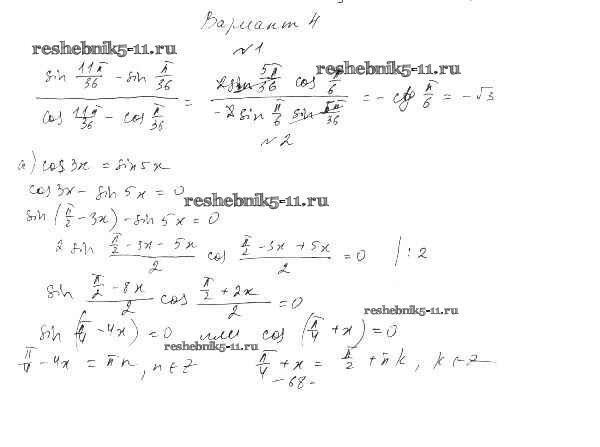 Вариант 4
reshebnik5-11.ru
№1
(sin 11π/36 - sin π/36)/(cos 11π/36 - cos π/36) = (2 sin 5π/36 cos π/6)/(-2 sin π/6 sin 5π/36) = - ctg π/6 = -√3
reshebnik5-11.ru
№2
а) cos 3x = sin 5x
cos 3x - sin 5x = 0
reshebnik5-11.ru
sin (π/2 - 3x) - sin 5x = 0
2 sin (π/2 - 3x - 5x)/2 cos (π/2 - 3x + 5x)/2 = 0 /:2
sin (π/2 - 8x)/2 cos (π/2 + 2x)/2 = 0
reshebnik5-11.ru
sin (π/4 - 4x) = 0 или cos (π/4 + x) = 0
reshebnik5-11.ru
π/4 - 4x = πn, n ∈ Z π/4 + x = π/2 + πk, k ∈ Z
- 68 -